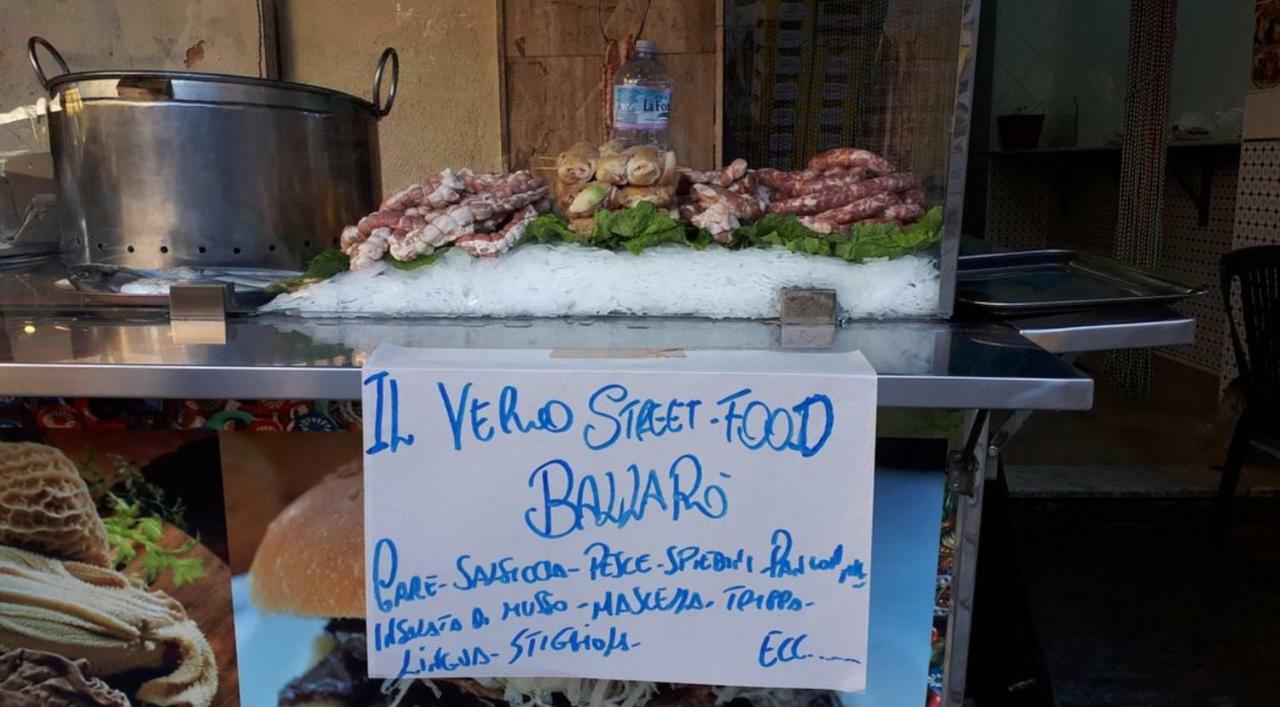 La Fon
IL VERO STREET-FOOD
BALLARÒ
CARE-SALSICCIA-PESCE-SPIEDINI PAN CON
INSALATA DI MUSSO-MASCELLA-TRIPPA-
LINGUA-STIGHIOLA- ECC.....